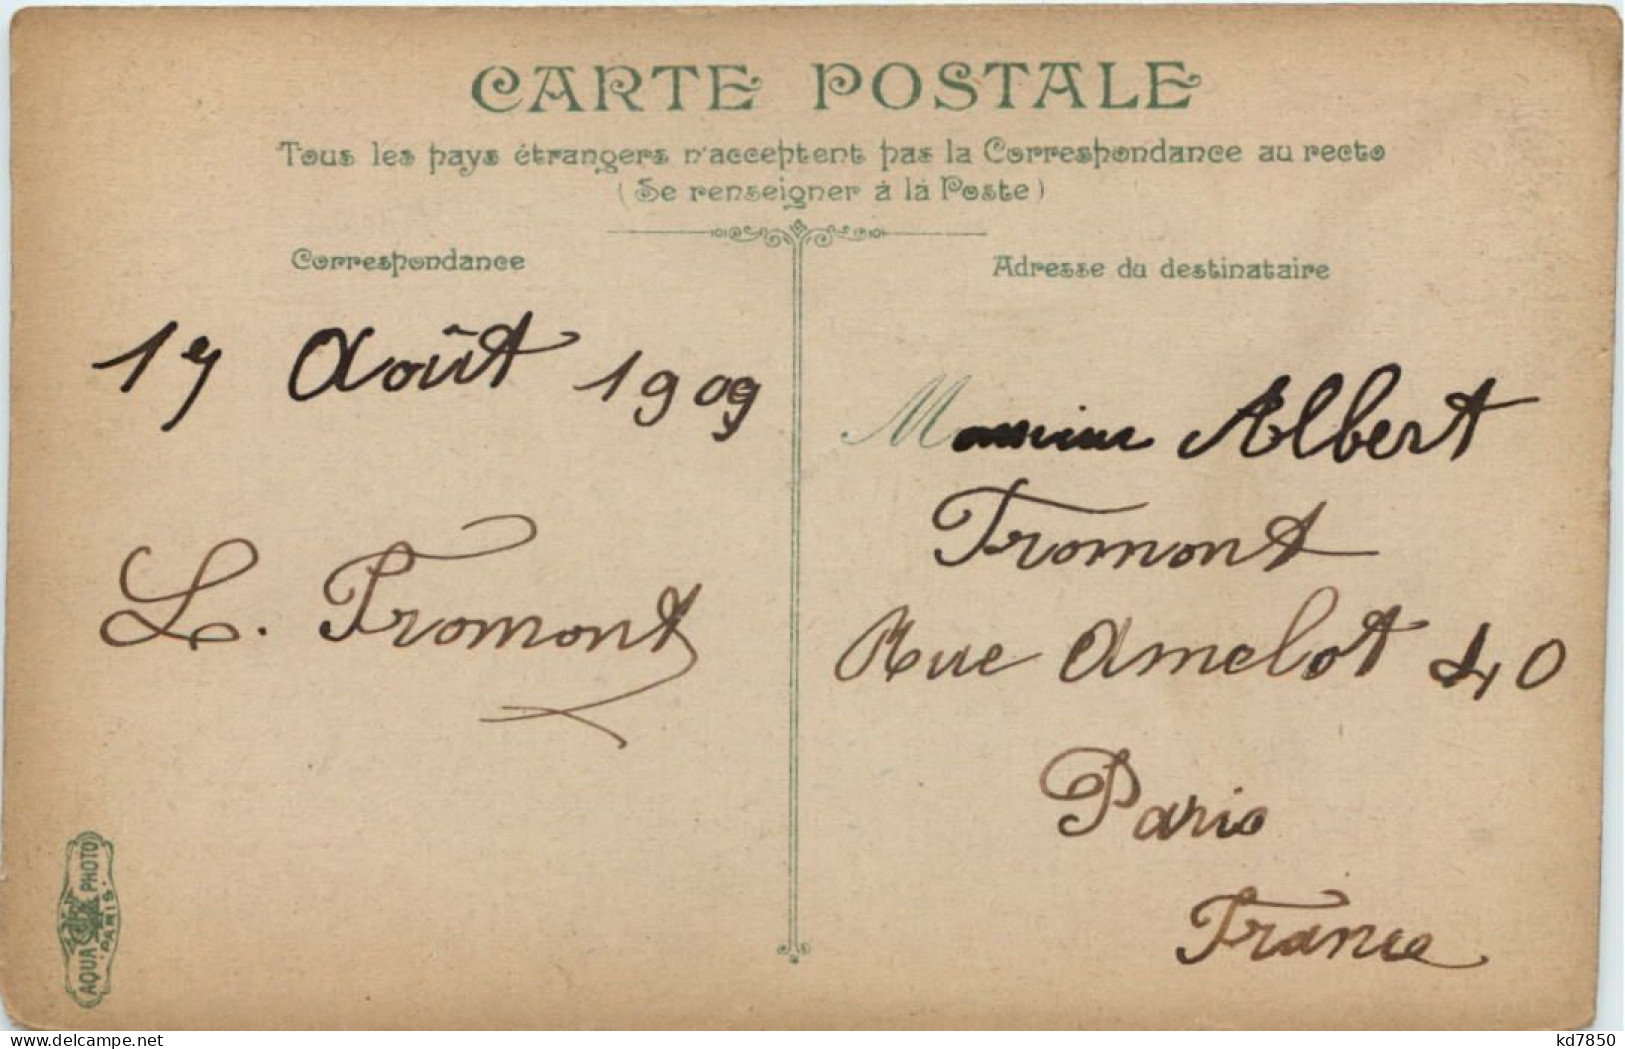 CARTE POSTALE
Tous les pays étrangers n'acceptent pas la Correspondance au recto
(Se renseigner à là Poste)
Correspondance
Adresse du destinataire
17 Août 1909
L. Fromont
Monsieur Albert
Fromont
Rue Amelot 40
Paris
France
AQUA PHOTO
PARIS
delcampe.net
kd7850